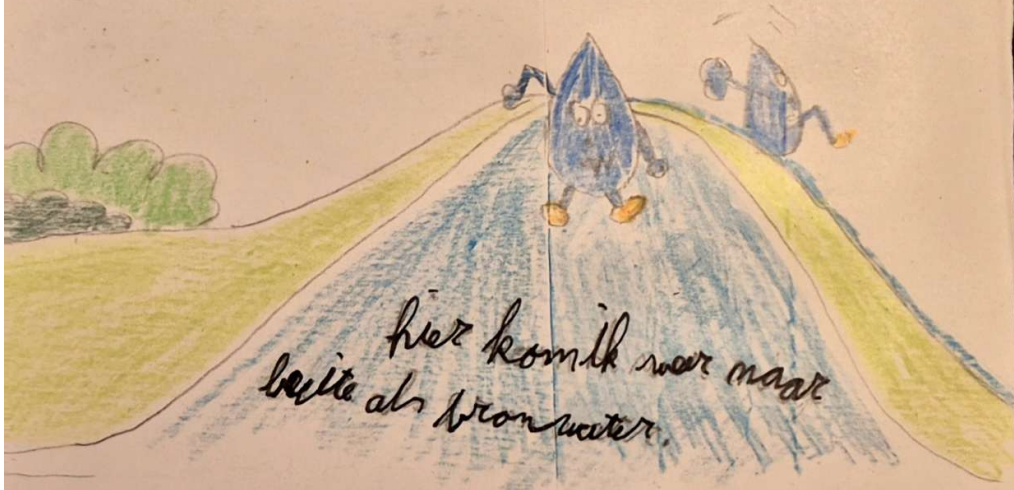 hier kom ik weer naar
buite als bronwater.